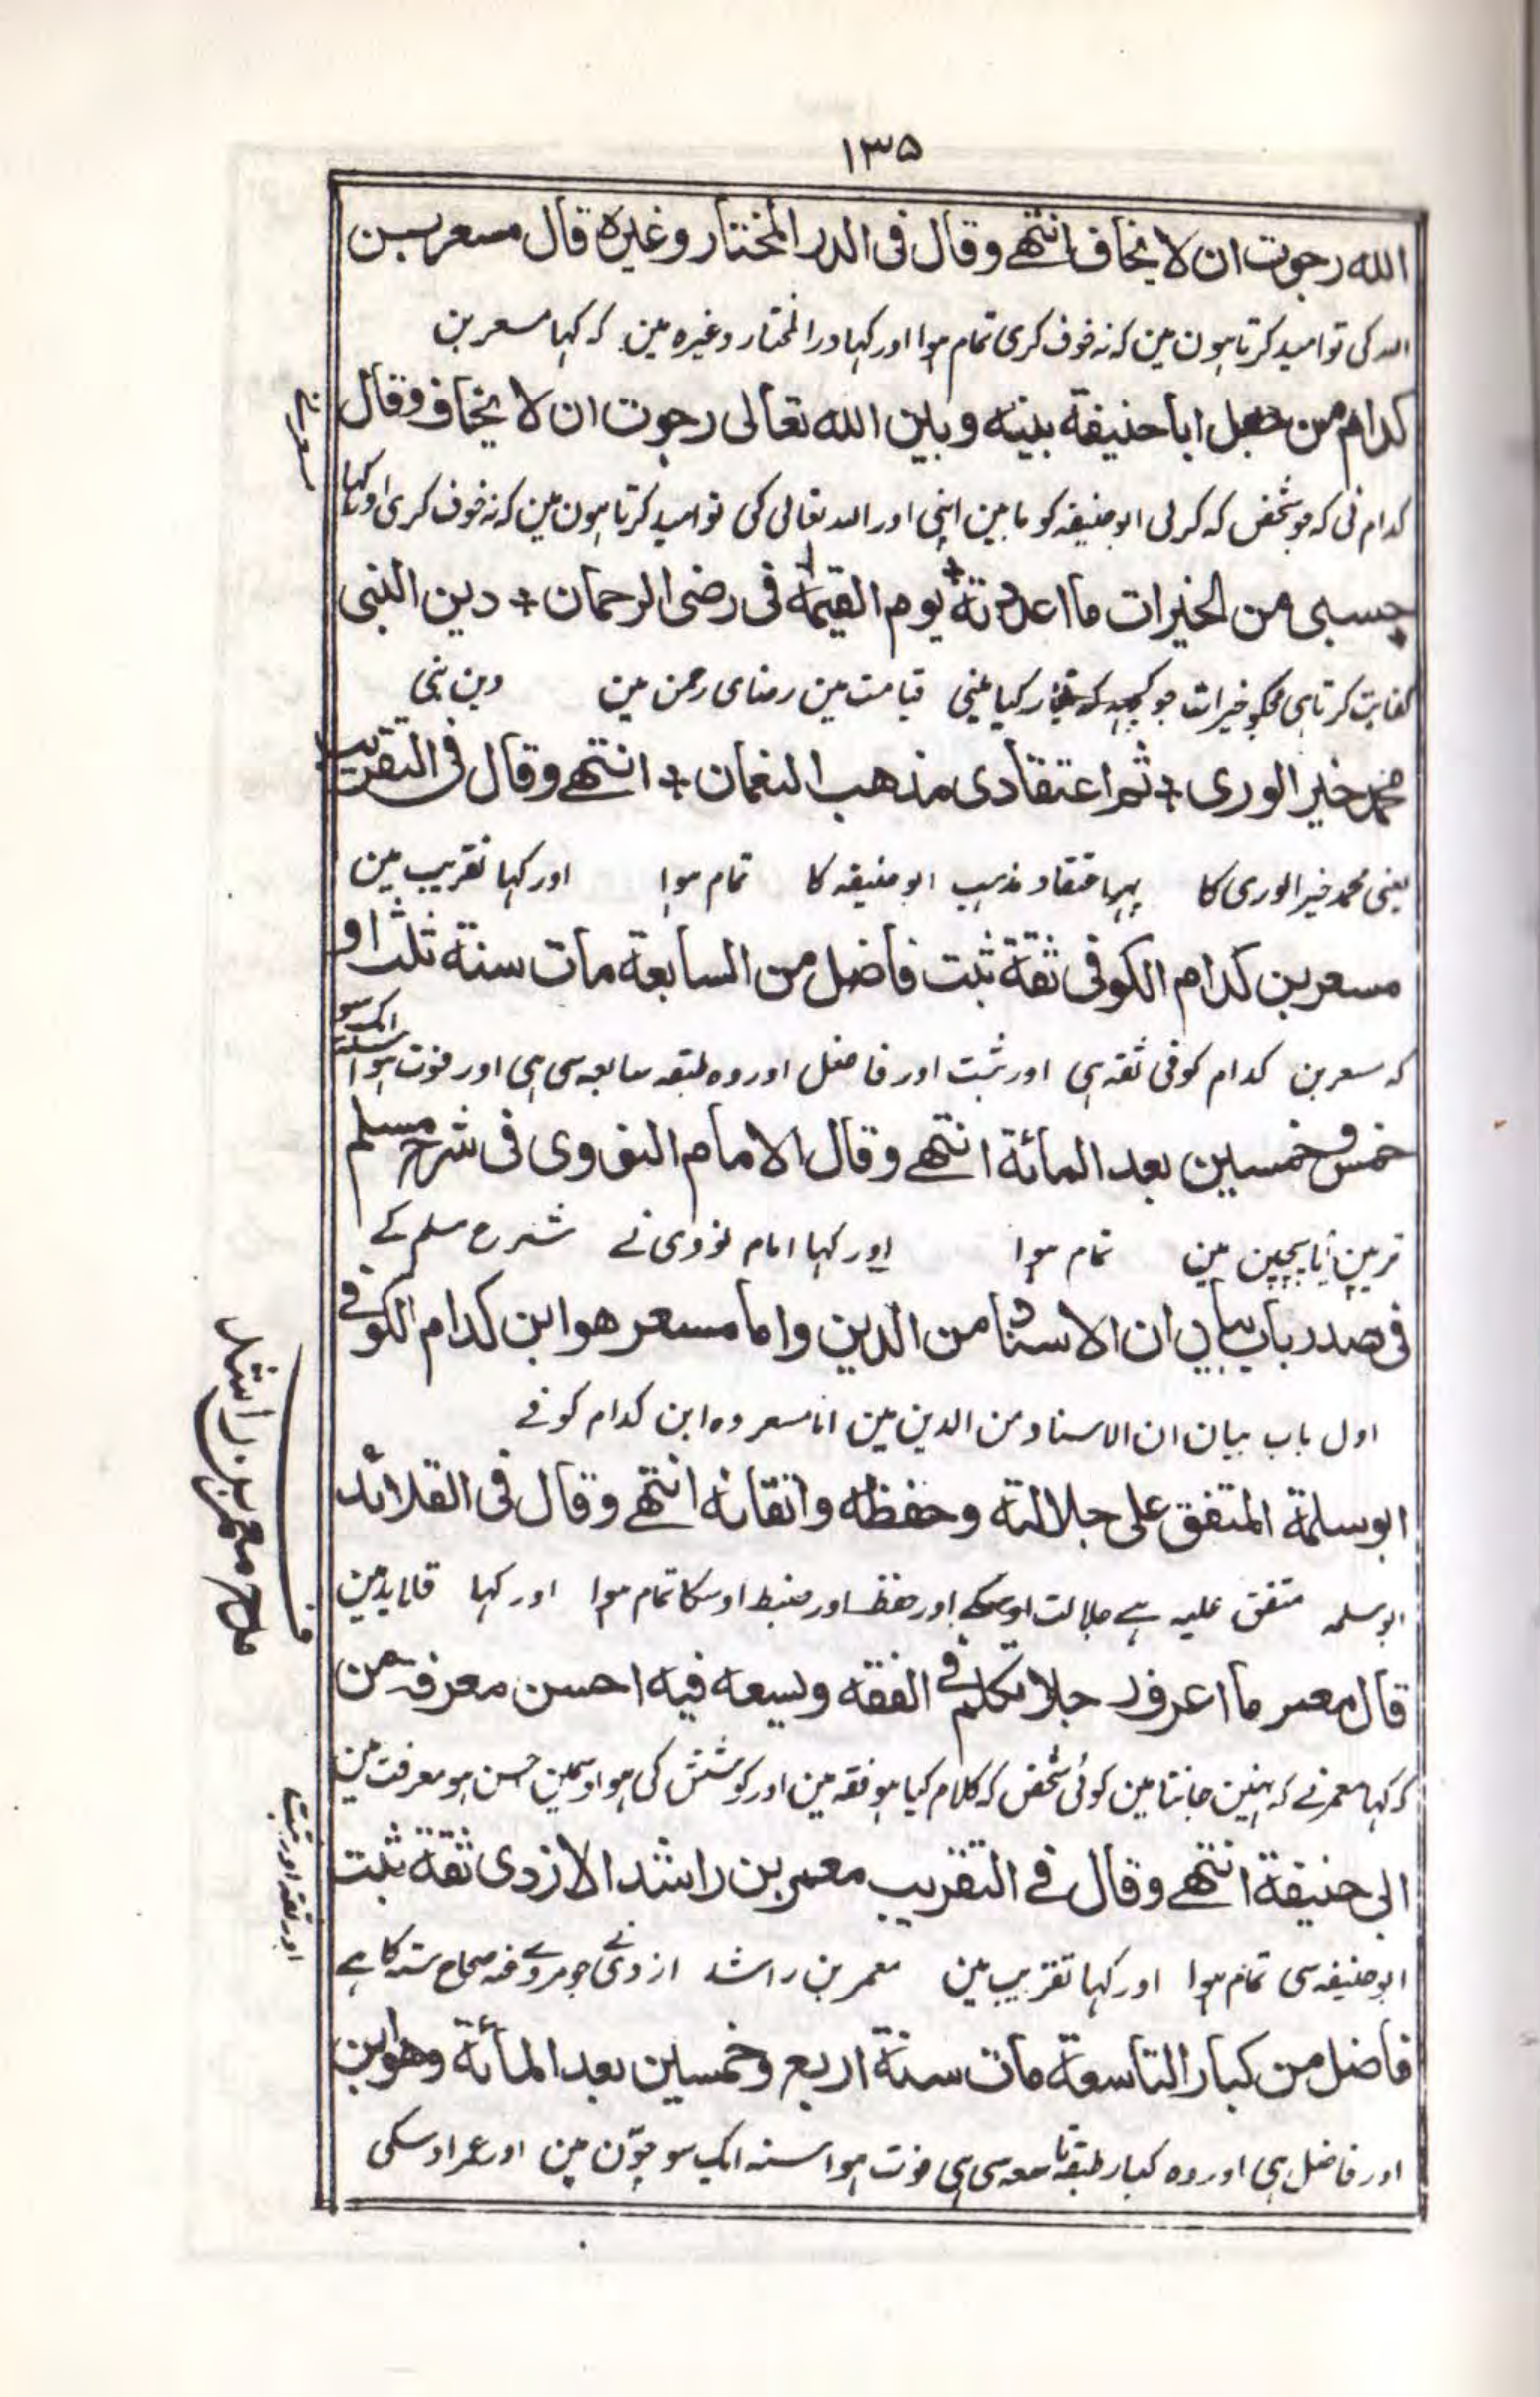 ١٣٥
الله رجوت ان لا يخاف انتهے وقال فى الدر المختار وغيره قال مسعر بن
اللہ کی تو امید کرتا ہون مین کہ نہ خوف کری تمام ہوا اور کہا در المختار وغیرہ مین کہ کہا مسعر بن
كدام من جعل ابا حنيفة بينه وبين الله تعالى رجوت ان لا يخاف وقال
کدام نی کہ جو شخص کہ کرلی ابو حنیفہ کو مابین اپنی اور اللہ تعالی کی تو امید کرتا ہون مین کہ نہ خوف کری اور کہا
حسبى من الخيرات ما اعددته + يوم القيمة فى رضى الرحمان + دين النبى
کفایت کرتا ہی مجکو خیرات جو کچہہ کہ تیار کیا مینی قیامت مین رضای رحمن مین دین نبی
محمد خير الورى + ثم اعتقادى مذهب النعمان + انتهے وقال فى التقريب
یعنی محمد خیر الوری کا پہر اعتقاد مذہب ابو حنیفہ کا تمام ہوا اور کہا تقریب مین
مسعر بن كدام الكوفى ثقة ثبت فاضل من السابعة مات سنة ثلث او
کہ مسعر بن کدام کوفی ثقہ ہی اور ثبت اور فاضل اور وہ طبقہ سابعہ سی ہی اور فوت ہوا سنہ ایک سو
خمس وخمسين بعد المائة انتهے وقال الامام النووى فى شرح مسلم
ترپن یا پچپن مین تمام ہوا اور کہا امام نووی نے شرح مسلم کے
فى صدر باب بيان ان الاسناد من الدين واما مسعر هو ابن كدام الكوفے
اول باب بیان ان الاسناد من الدین مین اما مسعر وہ ابن کدام کوفے
ابو سلمة المتفق على جلالته وحفظه واتقانه انتهے وقال فى القلائد
ابو سلمہ متفق علیہ ہے جلالت اوسکے اور حفظ اور ضبط اوسکا تمام ہوا اور کہا قلاید مین
قال معمر ما اعرف رجلا تكلم فے الفقه وسيعه فيه احسن معرفة من
کہ کہا معمر نے کہ نہین جانتا مین کوئی شخص کہ کلام کیا ہو فقہ مین اور کوشش کی ہو اوسمین حسن ہو معرفت مین
ابى حنيفة انتهے وقال فے التقريب معمر بن راشد الازدى ثقة ثبت
ابو حنیفہ سی تمام ہوا اور کہا تقریب مین معمر بن راشد ازدی نے جو صحاح ستہ کا ہے
فاضل من كبار التاسعة مات سنة اربع وخمسين بعد المائة وهو ابن
اور فاضل ہی اور وہ کبار طبقہ تاسعہ سی ہی فوت ہوا سنہ ایک سو چوّن مین اور عمر اوسکی
ف
مدح معمر بن راشد
اور ثقہ اور ثبت